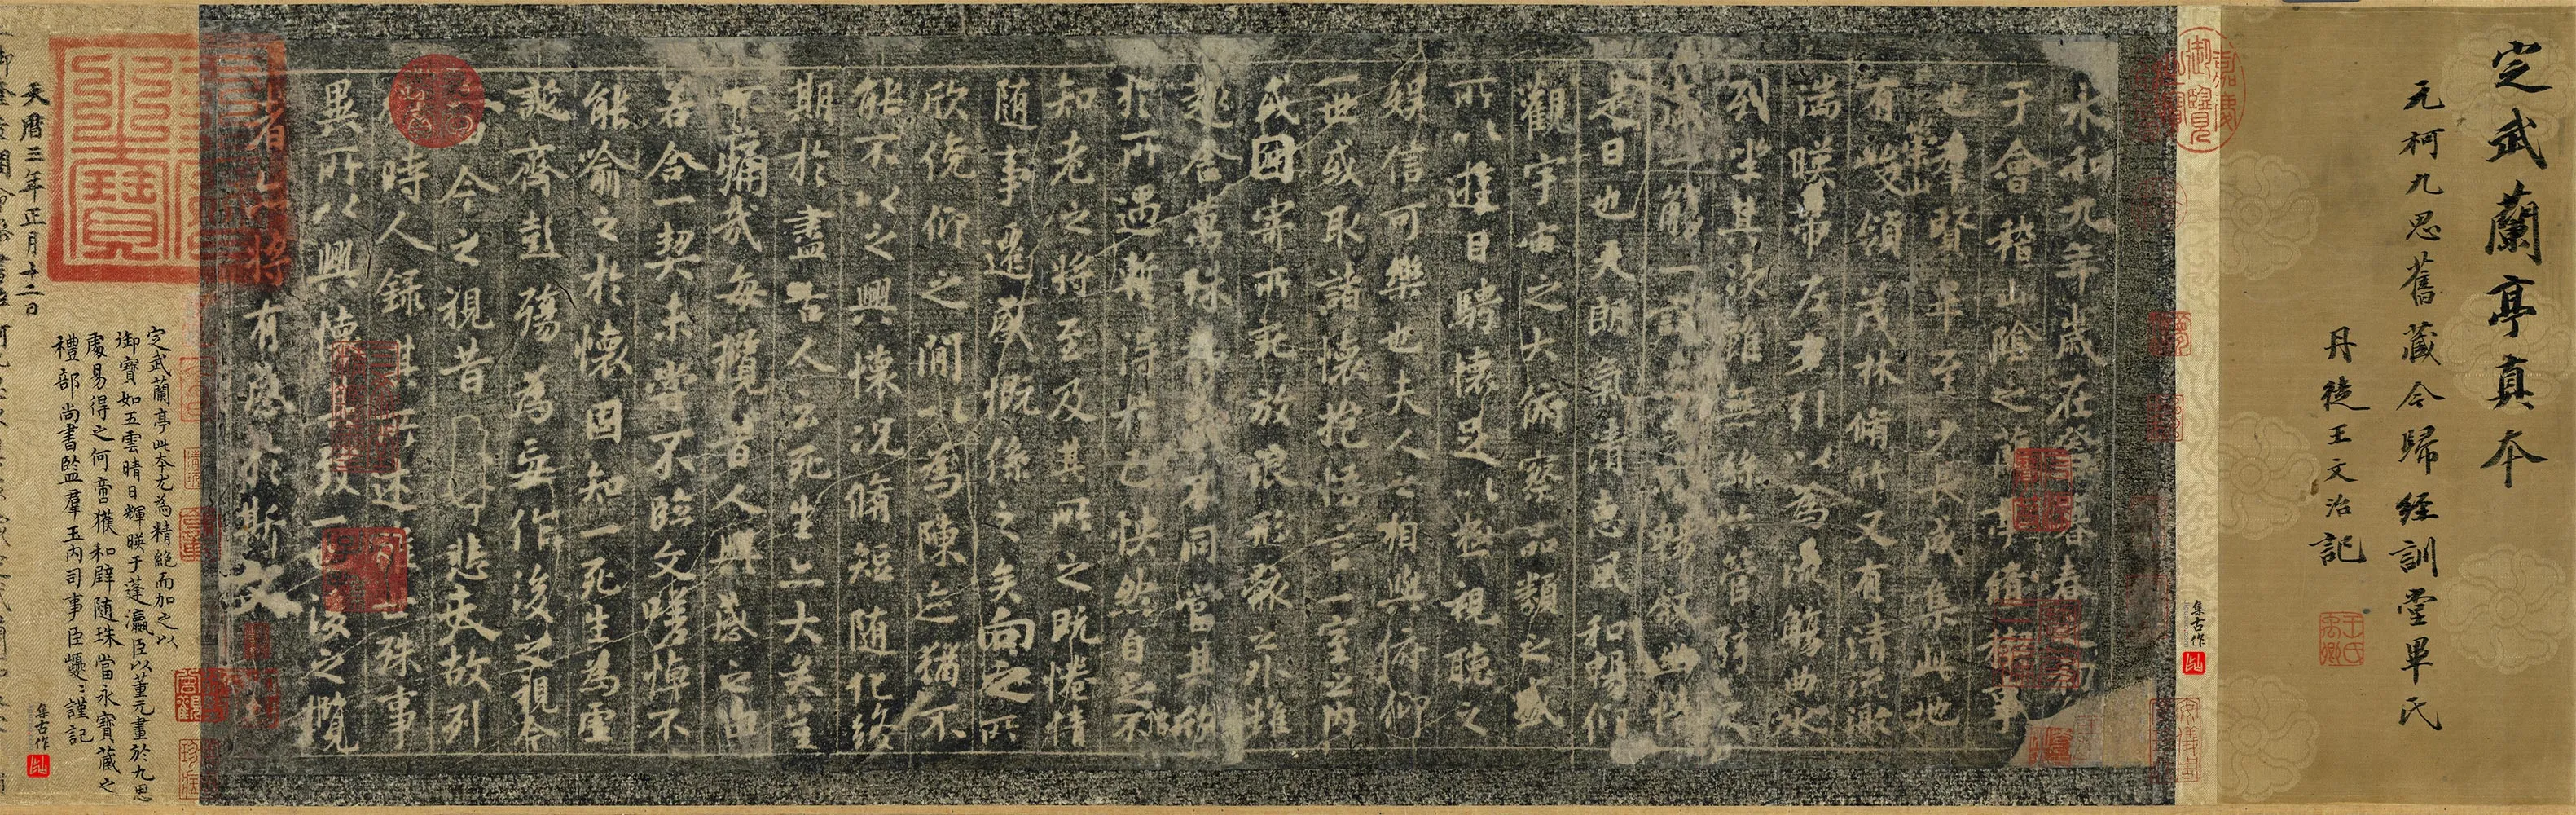 定武蘭亭真本
元柯九思舊藏今歸經訓堂畢氏
丹徒王文治記
嘉慶御覽之寶
集古作
永和九年歲在癸丑暮春之初
于會稽山陰之蘭亭脩禊事
也羣賢畢至少長咸集此地
有崇山
領茂林脩竹又有清流激
湍暎帶左右引以為流觴曲水
列坐其次雖無絲竹管弦之
一觴一詠亦足以暢敘幽情
是日也天朗氣清惠風和暢仰
觀宇宙之大俯察品類之盛
所以遊目騁懷足以極視聽之
娛信可樂也夫人之相與俯仰
一世或取諸懷抱悟言一室之內
或因寄所託放浪形骸之外雖
趣舍萬殊靜躁不同當其欣
於所遇暫得於己怏然自足不
知老之將至及其所之既惓情
隨事遷感慨係之矣向之所
欣俛仰之閒以為陳迹猶不
能不以之興懷況脩短隨化終
期於盡古人云死生亦大矣豈
不痛哉每攬昔人興感之由
若合一契未嘗不臨文嗟悼不
能喻之於懷固知一死生為虛
誕齊彭殤為妄作後之視今
今之視昔悲夫故列
時人錄其所述雖世殊事
異所以興懷其致一也後之攬
者亦將有感於斯文
定武蘭亭此本尤為精絕而加之以
御寶如五雲晴日輝暎于蓬瀛臣以董元畫於九思
處易得之何啻獲和璧隨珠當永寶藏之
禮部尚書監羣玉內司事臣巙巙謹記
集古作
天曆三年正月十二日